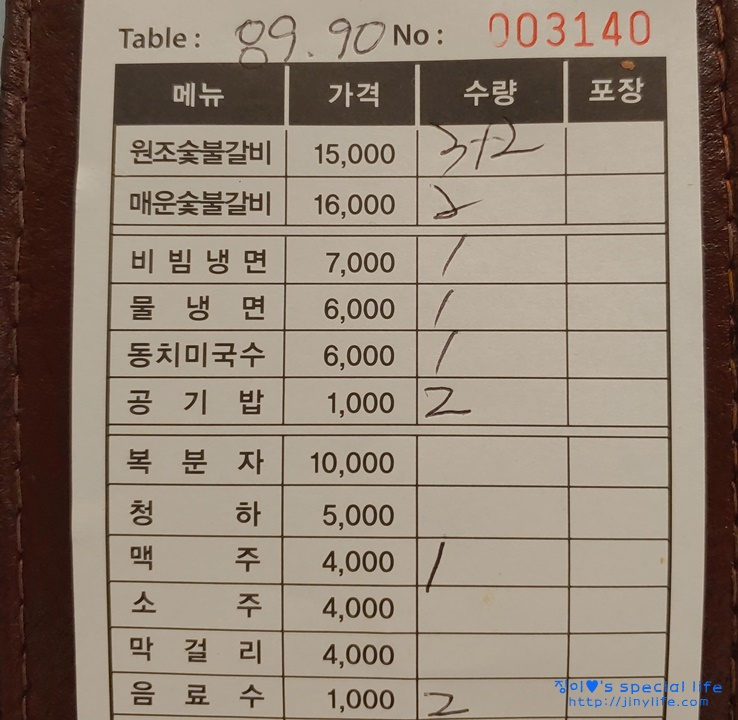 Table : 89.90 No : 003140
메뉴 가격 수량 포장
원조숯불갈비 15,000 3+2
매운숯불갈비 16,000 2
비빔냉면 7,000 1
물냉면 6,000 1
동치미국수 6,000 1
공기밥 1,000 2
복분자 10,000
청하 5,000
맥주 4,000 1
소주 4,000
막걸리 4,000
음료수 1,000 2
징이♥'s special life
http://jinylife.com